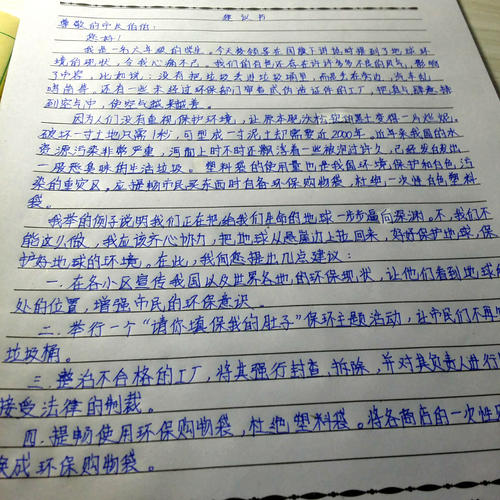 建议书
尊敬的市民伯伯:
您好!
我是一名六年级的学生。今天校领导在国旗下讲话时提到了地球环
境的现状,令我心痛不已。我们的自己还存在许许多多不良的风气,影响
了市容,比如说:没有把垃圾丢进垃圾桶里,而是丢在旁边,汽车乱
鸣笛等。还有一些未经过环保部门审查或伪造证件的工厂,把真气肆意排
到空气中,使空气越来越差。
因为人们没有重视保护环境,让原本肥沃松软的黑土变得一片烂泥。
破坏一寸土地只需1秒,可塑成一寸泥土却需要近2000年。近年来我国的水
资源污染非常严重,河面上时不时还飘浮着一些被泡过许久,已经发白发出
一层恶臭味的生活垃圾。塑料袋的使用量也是我国环境保护和白色污
染的重灾区,应提畅市民买东西时自备环保购物袋,杜绝一次性白色塑料
袋。
我举的例子说明我们正在把给我们生命的地球一步步逼向深渊。不,我们不
能这么做,我应该齐心协力,把地球从悬崖边上拉回来,好好保护地球,保
护好地球的环境。在此,我向您提出几点建议:
一.在各小区宣传我国以及世界各地的环保现状,让他们看到地球
处的位置,增强市民的环保意识。
二.举行一个“请你填保我的肚子”保环主题活动,让市民们不再
垃圾桶。
三.整治不合格的工厂,将其强行封查、拆除,并对其负责人进行
接受法律的制裁。
四.提畅使用环保购物袋,杜绝塑料袋。将各商店的一次性
换成环保购物袋。